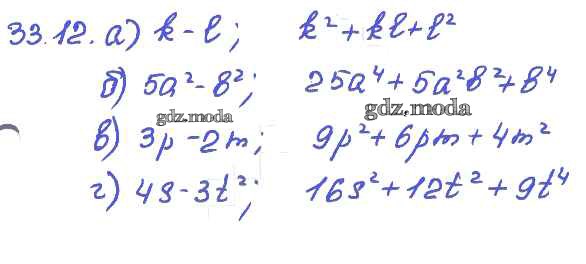 33.12. а) k - l; k² + kl + l²
б) 5a² - b²; 25a⁴ + 5a²b² + b⁴
gdz.moda gdz.moda
в) 3p - 2m; 9p² + 6pm + 4m²
г) 4s - 3t²; 16s² + 12t² + 9t⁴